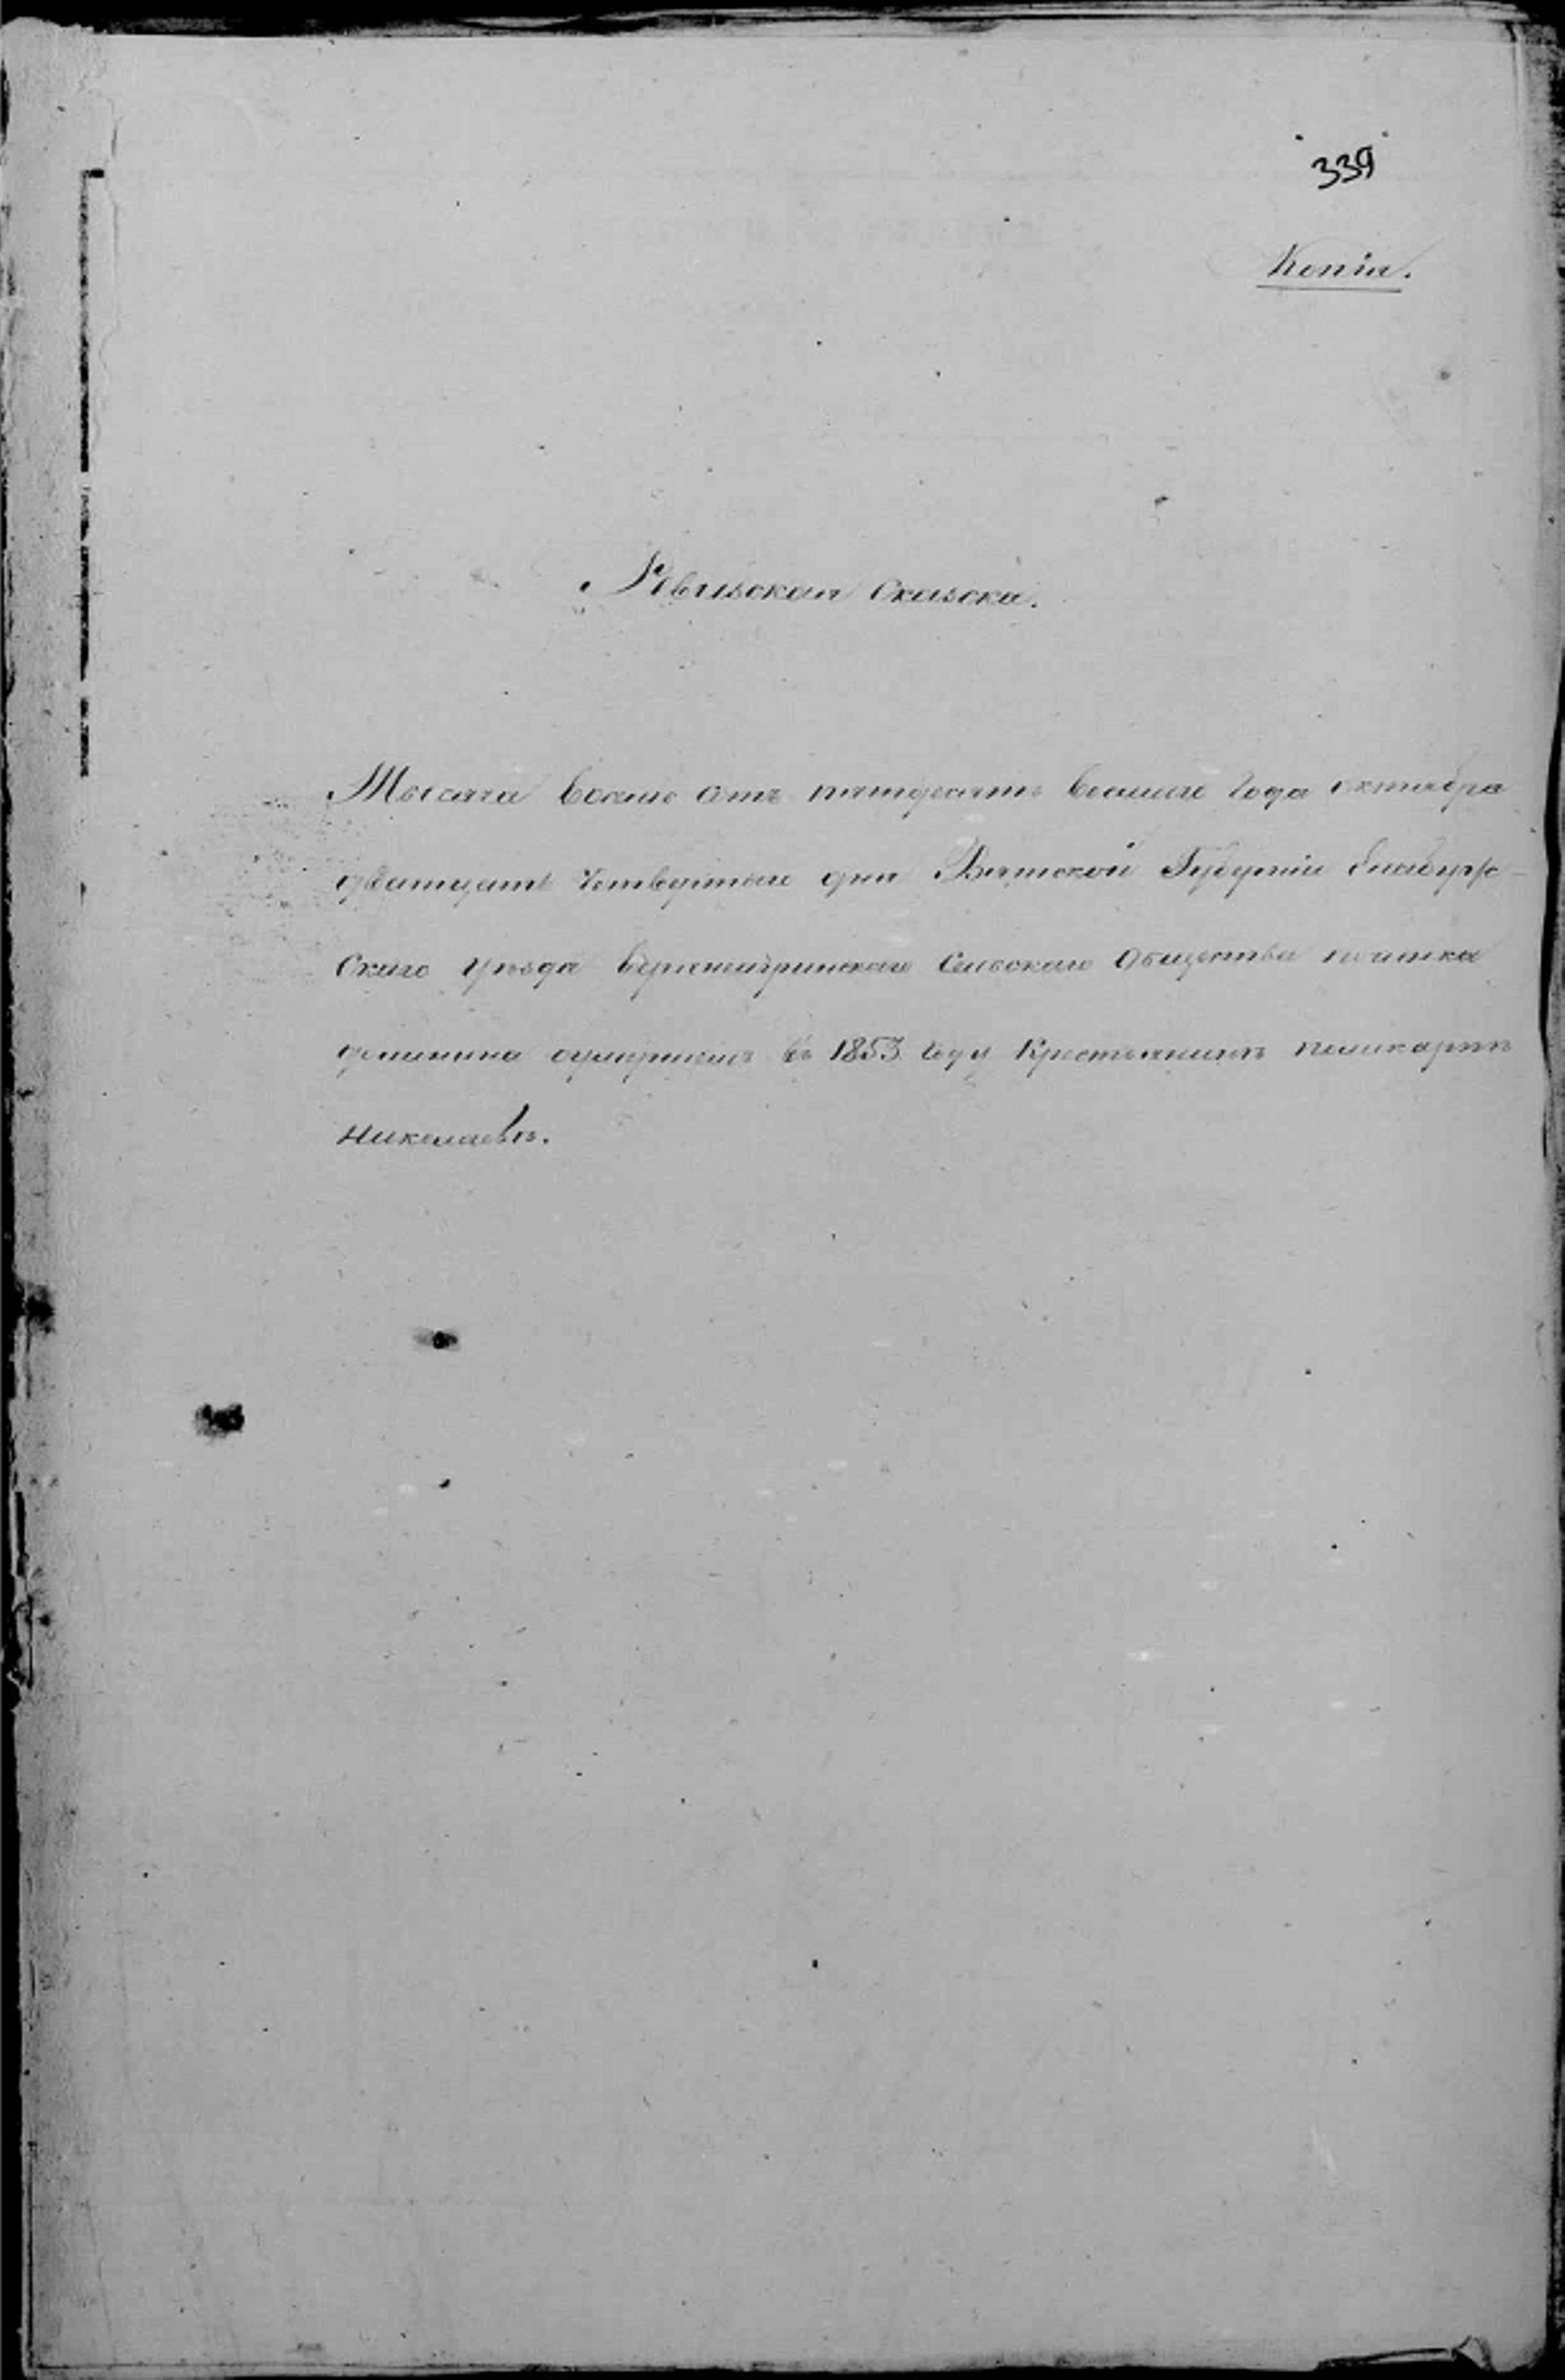 339
Копія.
Ревизская Сказка.
Тысяча восемь сотъ пятдесятъ восьмаго Года октября
дватцать Четвертаго дня Вятской Губерніи Елабужс-
Скаго Уѣзда Сельскаго Общества починка
въ 1853 году Крестьянинъ поликарпъ
Николаевъ.